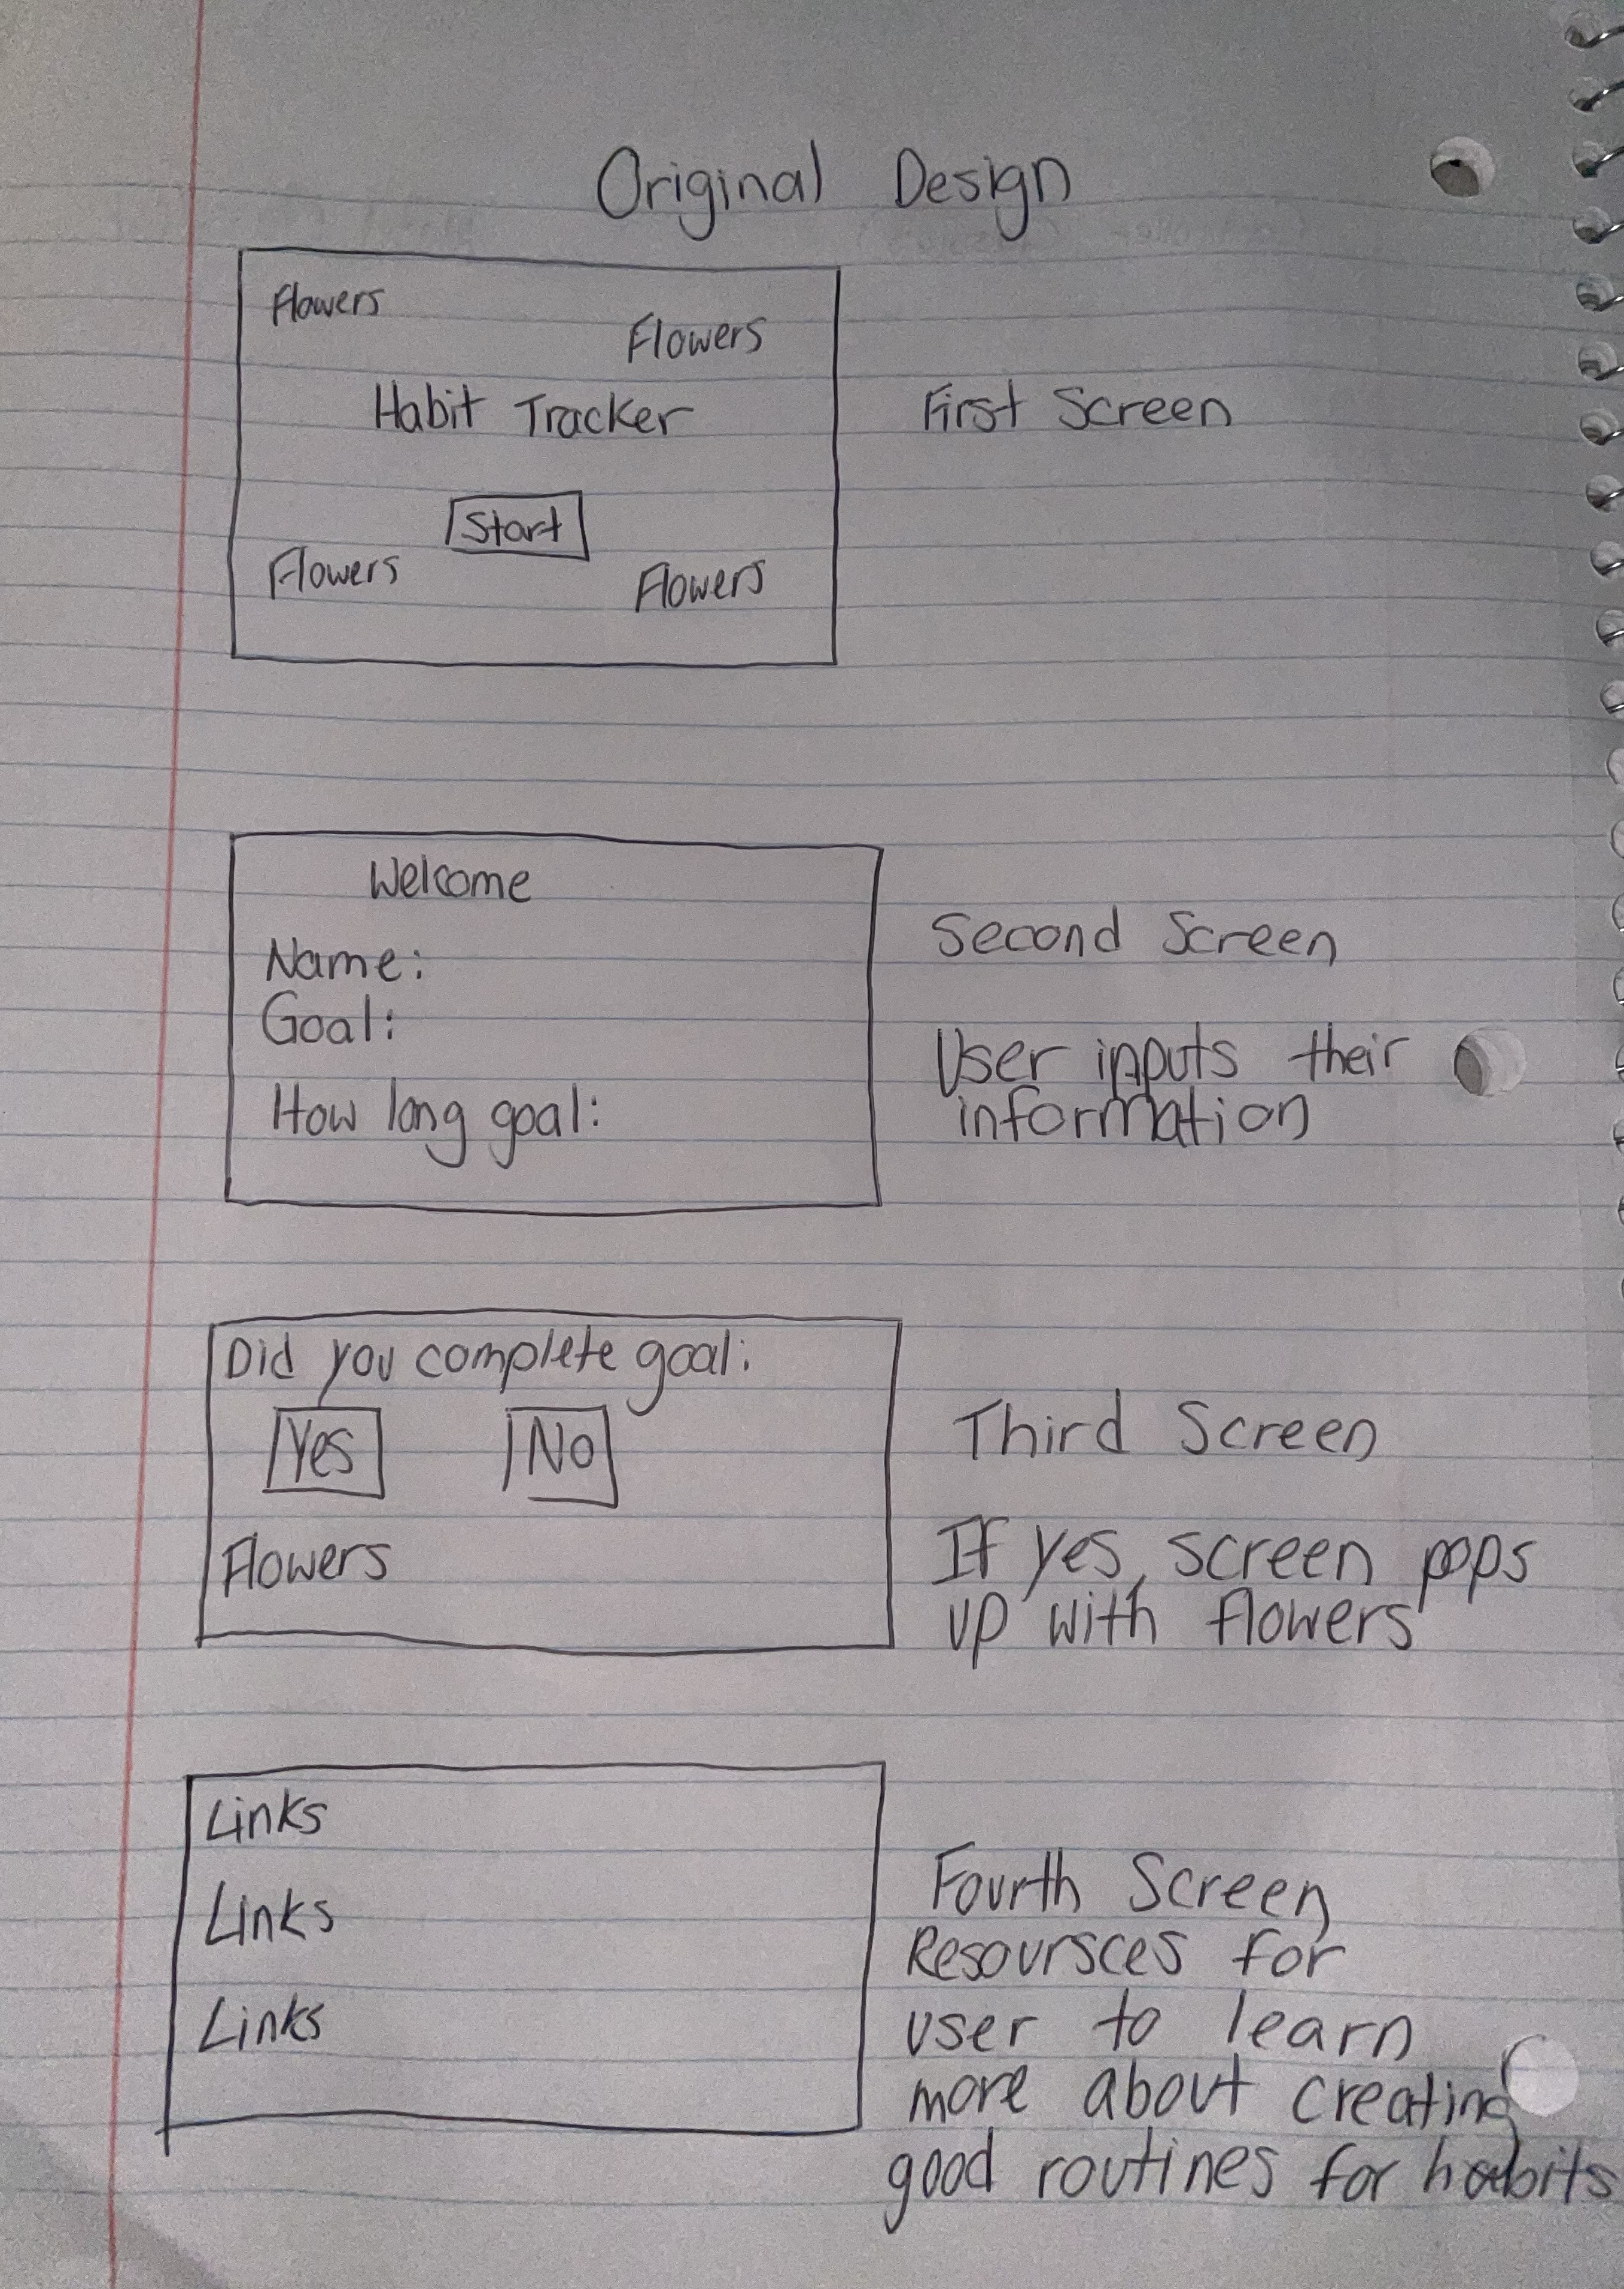 Original Design
Flowers
Flowers
Habit Tracker
Start
Flowers
Flowers
First Screen
Welcome
Name:
Goal:
How long goal:
Second Screen
User inputs their
information
Did you complete goal:
Yes No
Flowers
Third Screen
If yes, screen pops
up with flowers
Links
Links
Links
Fourth Screen
Resoursces for
user to learn
more about creating
good routines for habits